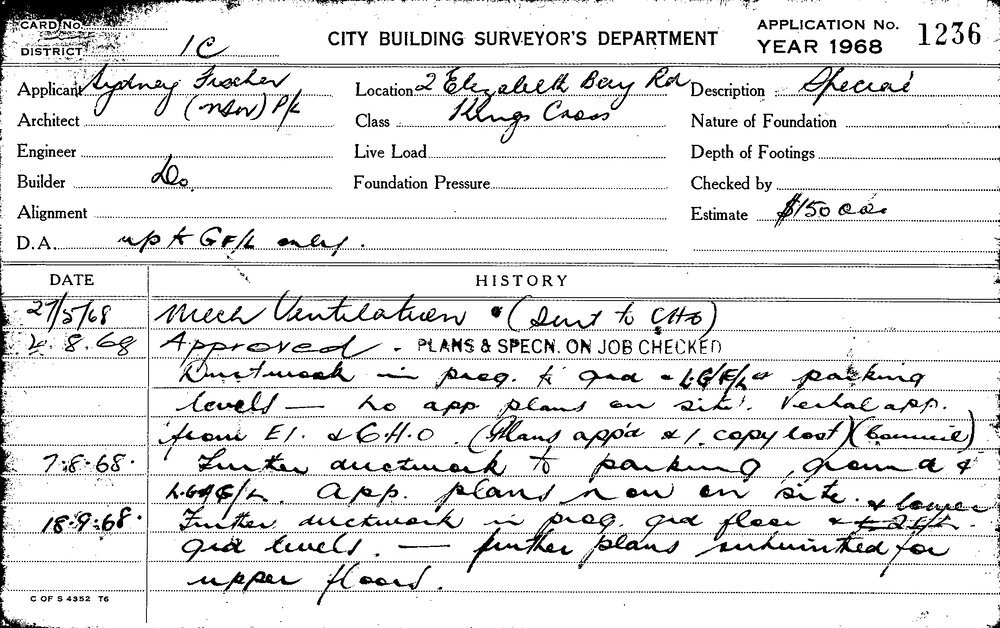 CARD No.
DISTRICT 1C
CITY BUILDING SURVEYOR'S DEPARTMENT
APPLICATION No. 1236
YEAR 1968
Applicant Sydney Fischer
(NSW) P/L
Location 2 Elizabeth Bay Rd
Kings Cross
Description Special
Architect
Class
Nature of Foundation
Engineer
Live Load
Depth of Footings
Builder Do.
Foundation Pressure
Checked by
Alignment
Estimate $150 000
D.A. up to GF/L only.
DATE HISTORY
27/5/68 Mech Ventilation (sent to CHO)
8.68 Approved. PLANS & SPECN. ON JOB CHECKED
Ductwork in prog. to grd & L.G/F/L & parking
levels — no app plans on site. Verbal app.
from E1. & C.H.O. (Plans app'd & 1. copy lost)
7.8.68. Further ductwork to parking, ground &
L.G F/L. App. plans now on site.
18.9.68. Further ductwork in prog. grd floor & lower
grd levels. — further plans submitted for
upper floors.
C OF S 4352 T6